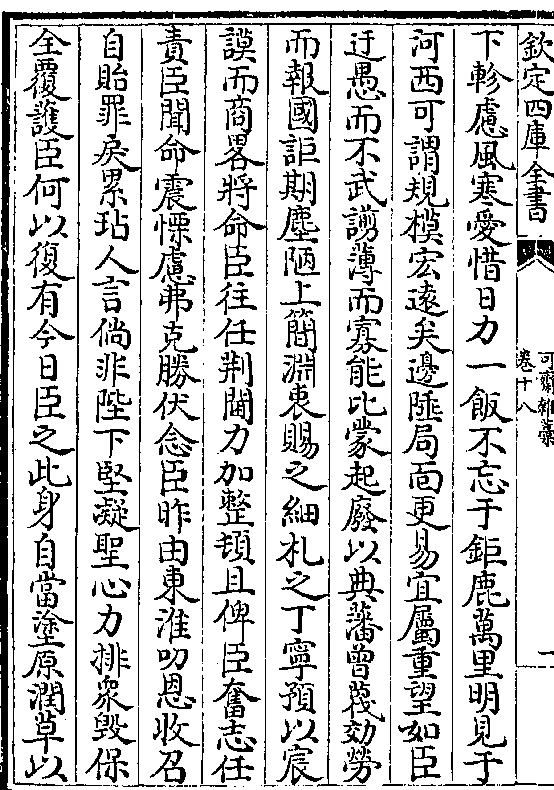 欽定四庫全書
可齋雜藁
卷十八
一
下軫慮風寒愛惜日力一飯不忘于鉅鹿萬里明見于
河西可謂規模宏遠矣邊陲局面更易宜屬重望如臣
迂愚而不武謭薄而寡能比蒙起廢以典藩曽蔑効勞
而報國詎期塵陋上簡淵衷賜之細札之丁寧預以宸
謨而商畧將命臣往任荆閫力加整頓且俾臣奮志任
責臣聞命震慄慮弗克勝伏念臣昨由東淮叨恩收召
自貽罪戾累玷人言倘非陛下堅凝聖心力排衆毁保
全覆護臣何以復有今日臣之此身自當塗原潤草以